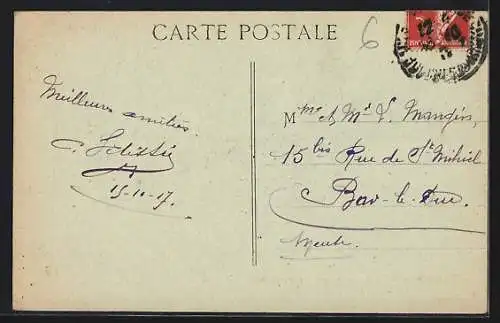 CARTE POSTALE
6
Meilleures amitiés.
15-10-17.
Mme & Mr V. Mangin,
15 bis Rue de St Mihiel
Bar-le-Duc.
Meuse.